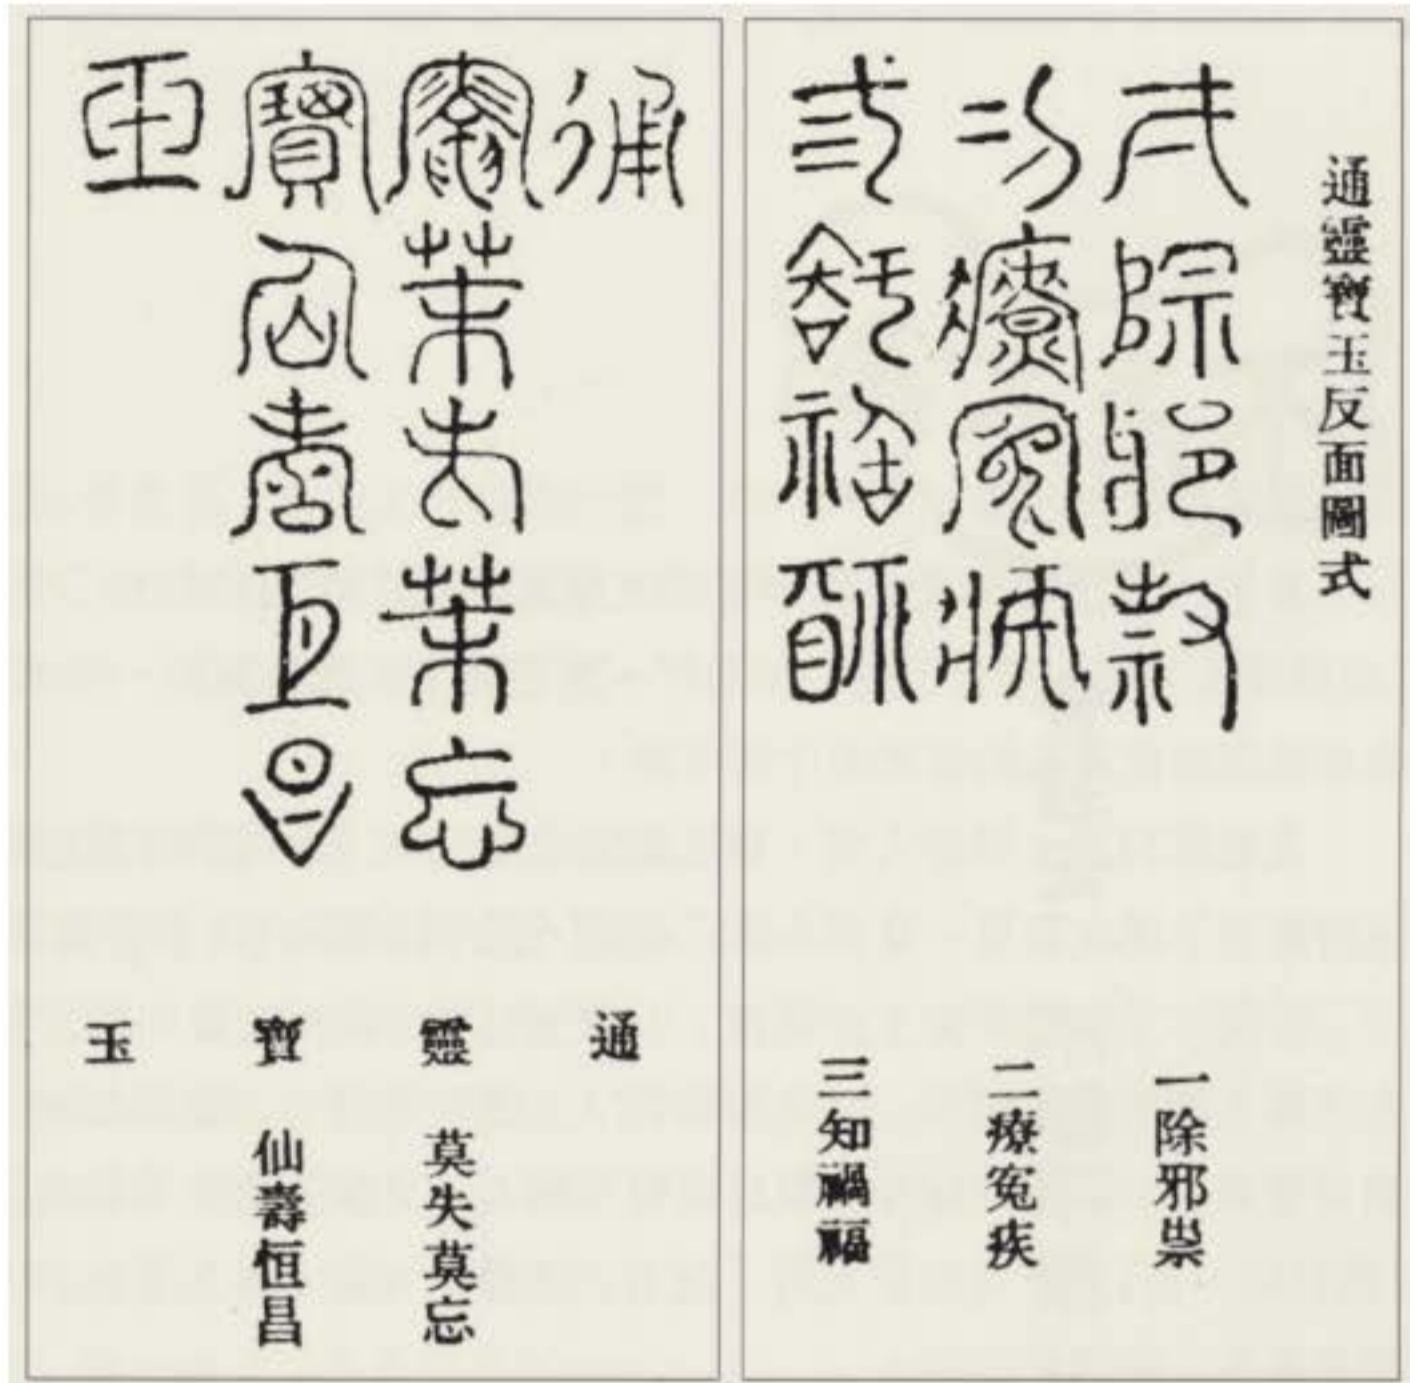 通靈寶玉反面圖式
弌除邪祟
二療寃疾
弎知禍福
一除邪祟
二療寃疾
三知禍福
通
靈莫失莫忘
寶仙壽恒昌
玉
通
靈 莫失莫忘
寶 仙壽恒昌
玉